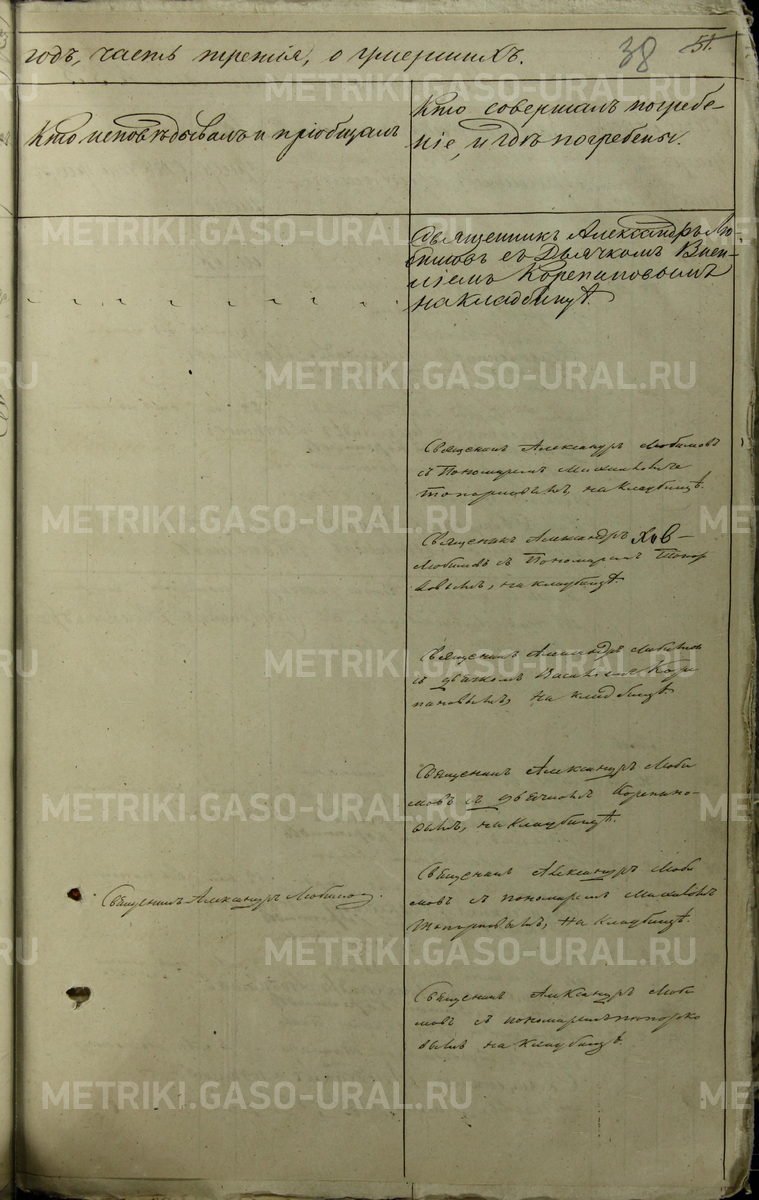 годъ, часть третія, о умершихъ.
38 51.
Кто исповѣдывалъ и пріобщалъ
Кто совершалъ погребе-
ніе, и гдѣ погребены.
Священникъ Александръ Лю-
бимовъ съ Дьячкомъ
Корепановымъ
на кладбищѣ.
Священникъ Александръ Любимовъ
съ Пономаремъ
на кладбищѣ.
Священникъ Александръ
Любимовъ съ Пономаремъ Топор
ковымъ, на кладбищѣ.
Священникъ Александръ Любимовъ
съ дьячкомъ Василіемъ Коре
пановымъ, на кладбищѣ
Священникъ Александръ Люби
мовъ съ дьячкомъ Корепано-
вымъ, на кладбищѣ.
Священникъ Александръ Любимовъ.
Священникъ Александръ Люби
мовъ съ пономаремъ
Топорковымъ, на кладбищѣ.
Священникъ Александръ Люби
мовъ съ пономаремъ Топорко
вымъ на кладбищѣ.
METRIKI.GASO-URAL.RU